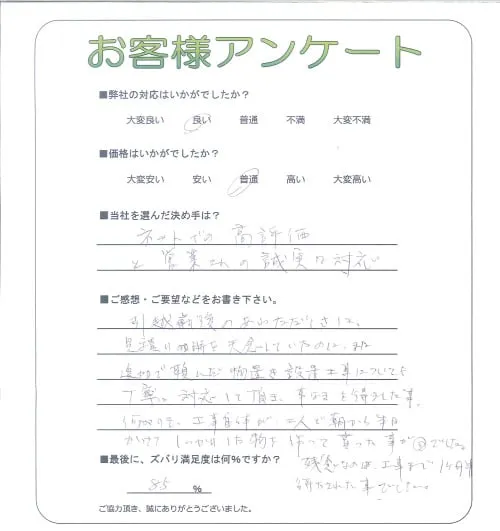 お客様アンケート
■弊社の対応はいかがでしたか？
大変良い 良い 普通 不満 大変不満
■価格はいかがでしたか？
大変安い 安い 普通 高い 大変高い
■当社を選んだ決め手は？
ネットでの高評価
と営業さんの誠実な対応
■ご感想・ご要望などをお書き下さい。
引越前後のあわただしさに、
見積り
追加で頼んだ物置き設置工事についても
丁寧に対応して頂き、事なきを得ました事。
何よりも、工事自体が二人で朝から半日
かけてしっかりした物を作って貰った事が
■最後に、ズバリ満足度は何％ですか？
残念なのは、工事まで1ヶ月半
85 ％
待たされた事でした。
ご協力頂き、誠にありがとうございました。